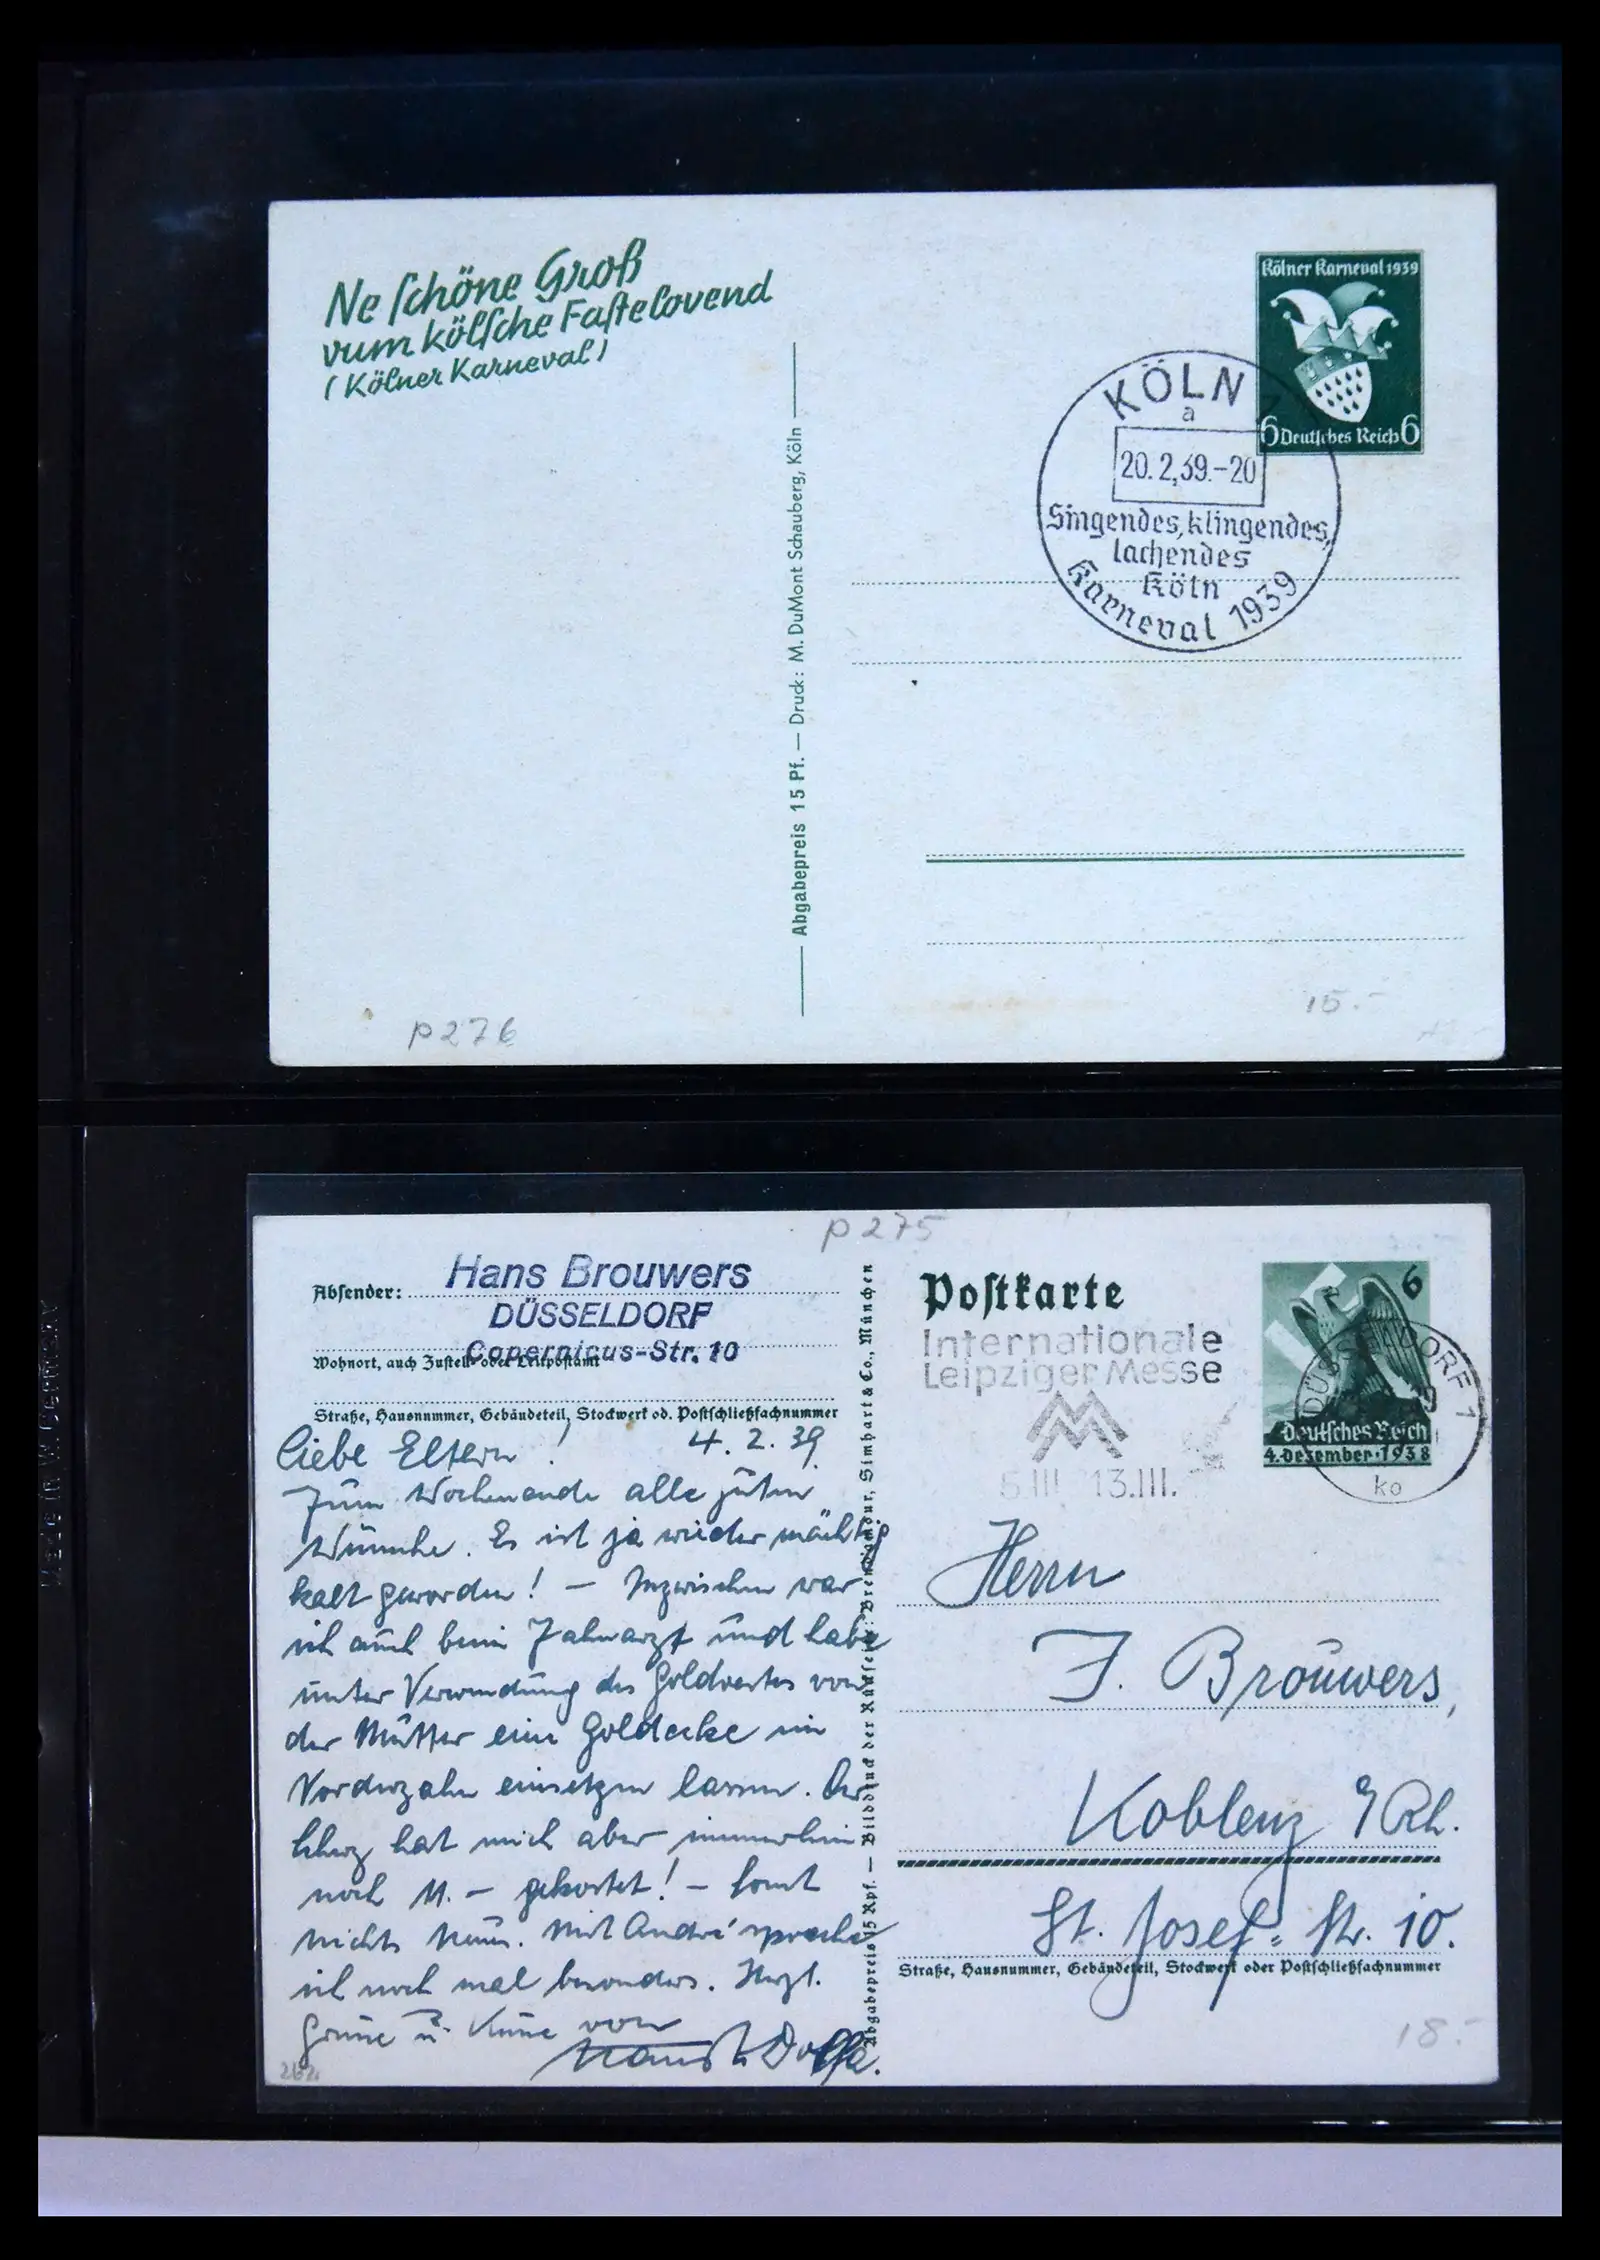 Ne schöne Groß
vum kölsche Fastelovend
(Kölner Karneval)
Abgabepreis 15 Pf. — Druck: M. DuMont Schauberg, Köln
Kölner Karneval 1939
6 Deutsches Reich 6
KÖLN 1
a
20.2.39.-20
Singendes, klingendes,
lachendes
Köln
Karneval 1939
p 276
15.-
p 275
Absender:
Hans Brouwers
DÜSSELDORF
Copernicus-Str. 10
Wohnort, auch Zustell- oder Leitpostamt
Straße, Hausnummer, Gebäudeteil, Stockwerk od. Postschließfachnummer
4. 2. 39.
Liebe Eltern!
Zum Wochenende alle guten
Wünsche. Es ist ja wieder mächtig
kalt geworden! – Inzwischen war
ich auch beim Zahnarzt und habe
unter Verwendung des Goldwertes von
der Mutter eine Goldecke im
Vorderzahn einsetzen lassen. Der
hat mich aber immerhin
noch 11.– gekostet! – Sonst
nichts Neues. Mit André spreche
ich noch mal besonders. Herzl.
Grüsse u. Küsse von
Abgabepreis 15 Rpf. — Bilddruck der Rückseite: Brend'amour, Simhart & Co., München
Postkarte
Internationale
Leipziger Messe
MM
5.III. 13.III.
6
Deutsches Reich
4. Dezember 1938
DÜSSELDORF 1
ko
Herrn
J. Brouwers,
Koblenz a/Rh.
St. Josef-Str. 10.
Straße, Hausnummer, Gebäudeteil, Stockwerk oder Postschließfachnummer
18.-
Made in W. Germany